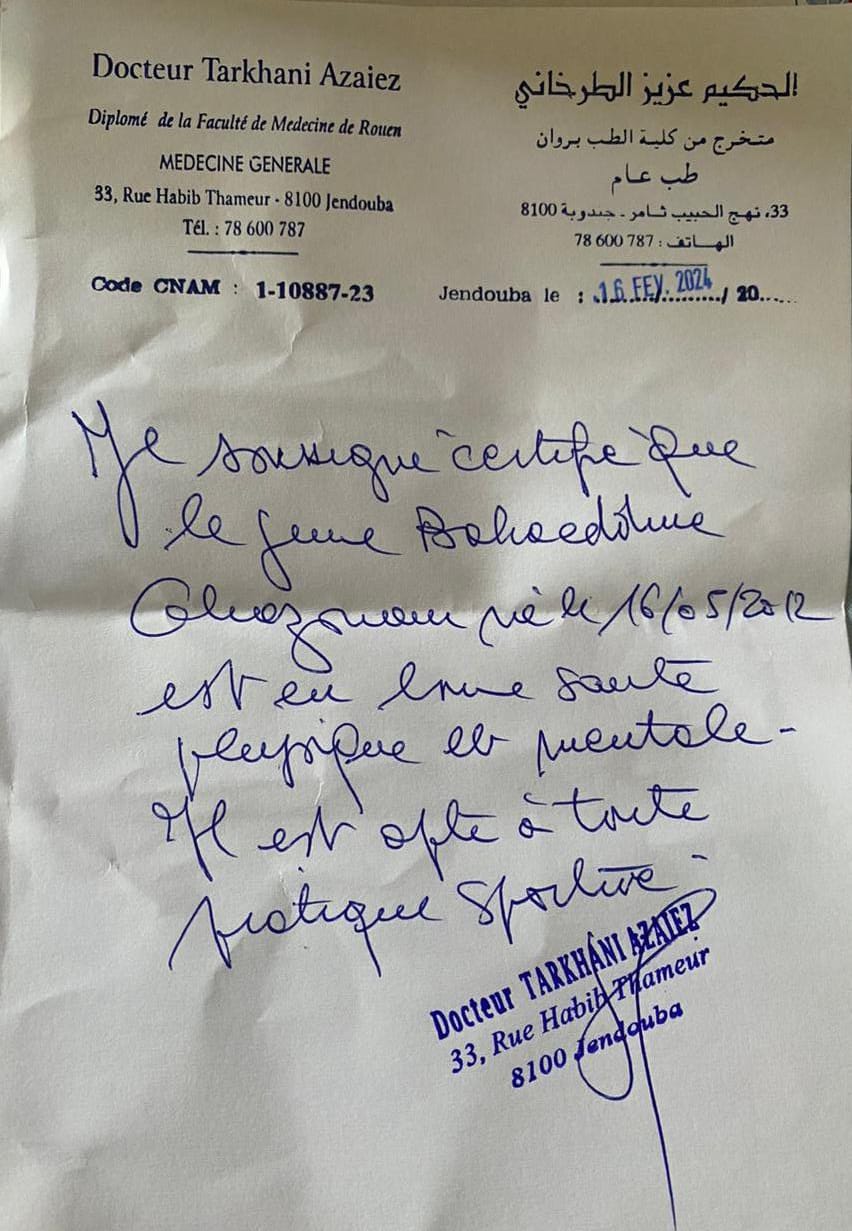 Docteur Tarkhani Azaiez
Diplomé de la Faculté de Medecine de Rouen
MEDECINE GENERALE
33, Rue Habib Thameur - 8100 Jendouba
Tél. : 78 600 787
Code CNAM : 1-10887-23
الحكيم عزيز الطرخاني
متخرج من كلية الطب بروان
طب عام
33، نهج الحبيب ثامر - جندوبة 8100
الهاتف : 787 600 78
Jendouba le : 16 FEV. 2024 / 20......
Je soussigné certifie que
le jeune Bahaeddine
né le 16/05/2012
est en bonne santé
physique et mentale -
Il est apte à toute
pratique sportive -
Docteur TARKHANI AZAIEZ
33, Rue Habib Thameur
8100 Jendouba